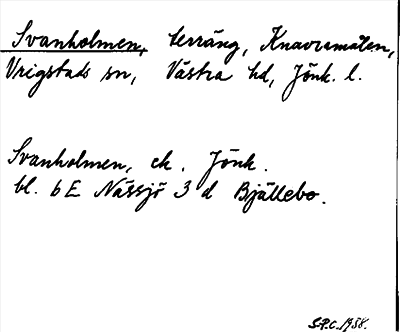 Svanholmen, terräng, Knavramålen,
Vrigstads sn, Västra hd, Jönk. l.
Svanholmen, ek. Jönk.
bl. 6E Nässjö 3 d Bjällebo.
S.P.C. 1958.